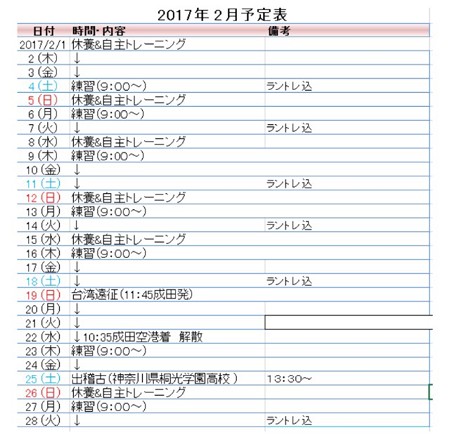 2017年2月予定表
日付 時間・内容 備考
2017/2/1 休養&自主トレーニング
2(木) ↓
3(金) ↓
4(土) 練習(9:00～) ラントレ込
5(日) 休養&自主トレーニング
6(月) 練習(9:00～)
7(火) ↓ ラントレ込
8(水) 休養&自主トレーニング
9(木) 練習(9:00～)
10(金) ↓
11(土) ↓ ラントレ込
12(日) 休養&自主トレーニング
13(月) 練習(9:00～)
14(火) ↓ ラントレ込
15(水) 休養&自主トレーニング
16(木) 練習(9:00～)
17(金) ↓
18(土) ↓ ラントレ込
19(日) 台湾遠征(11:45成田発)
20(月) ↓
21(火) ↓
22(水) ↓10:35成田空港着 解散
23(木) 練習(9:00～)
24(金) ↓
25(土) 出稽古(神奈川県桐光学園高校) 13:30～
26(日) 休養&自主トレーニング
27(月) 練習(9:00～)
28(火) ↓ ラントレ込